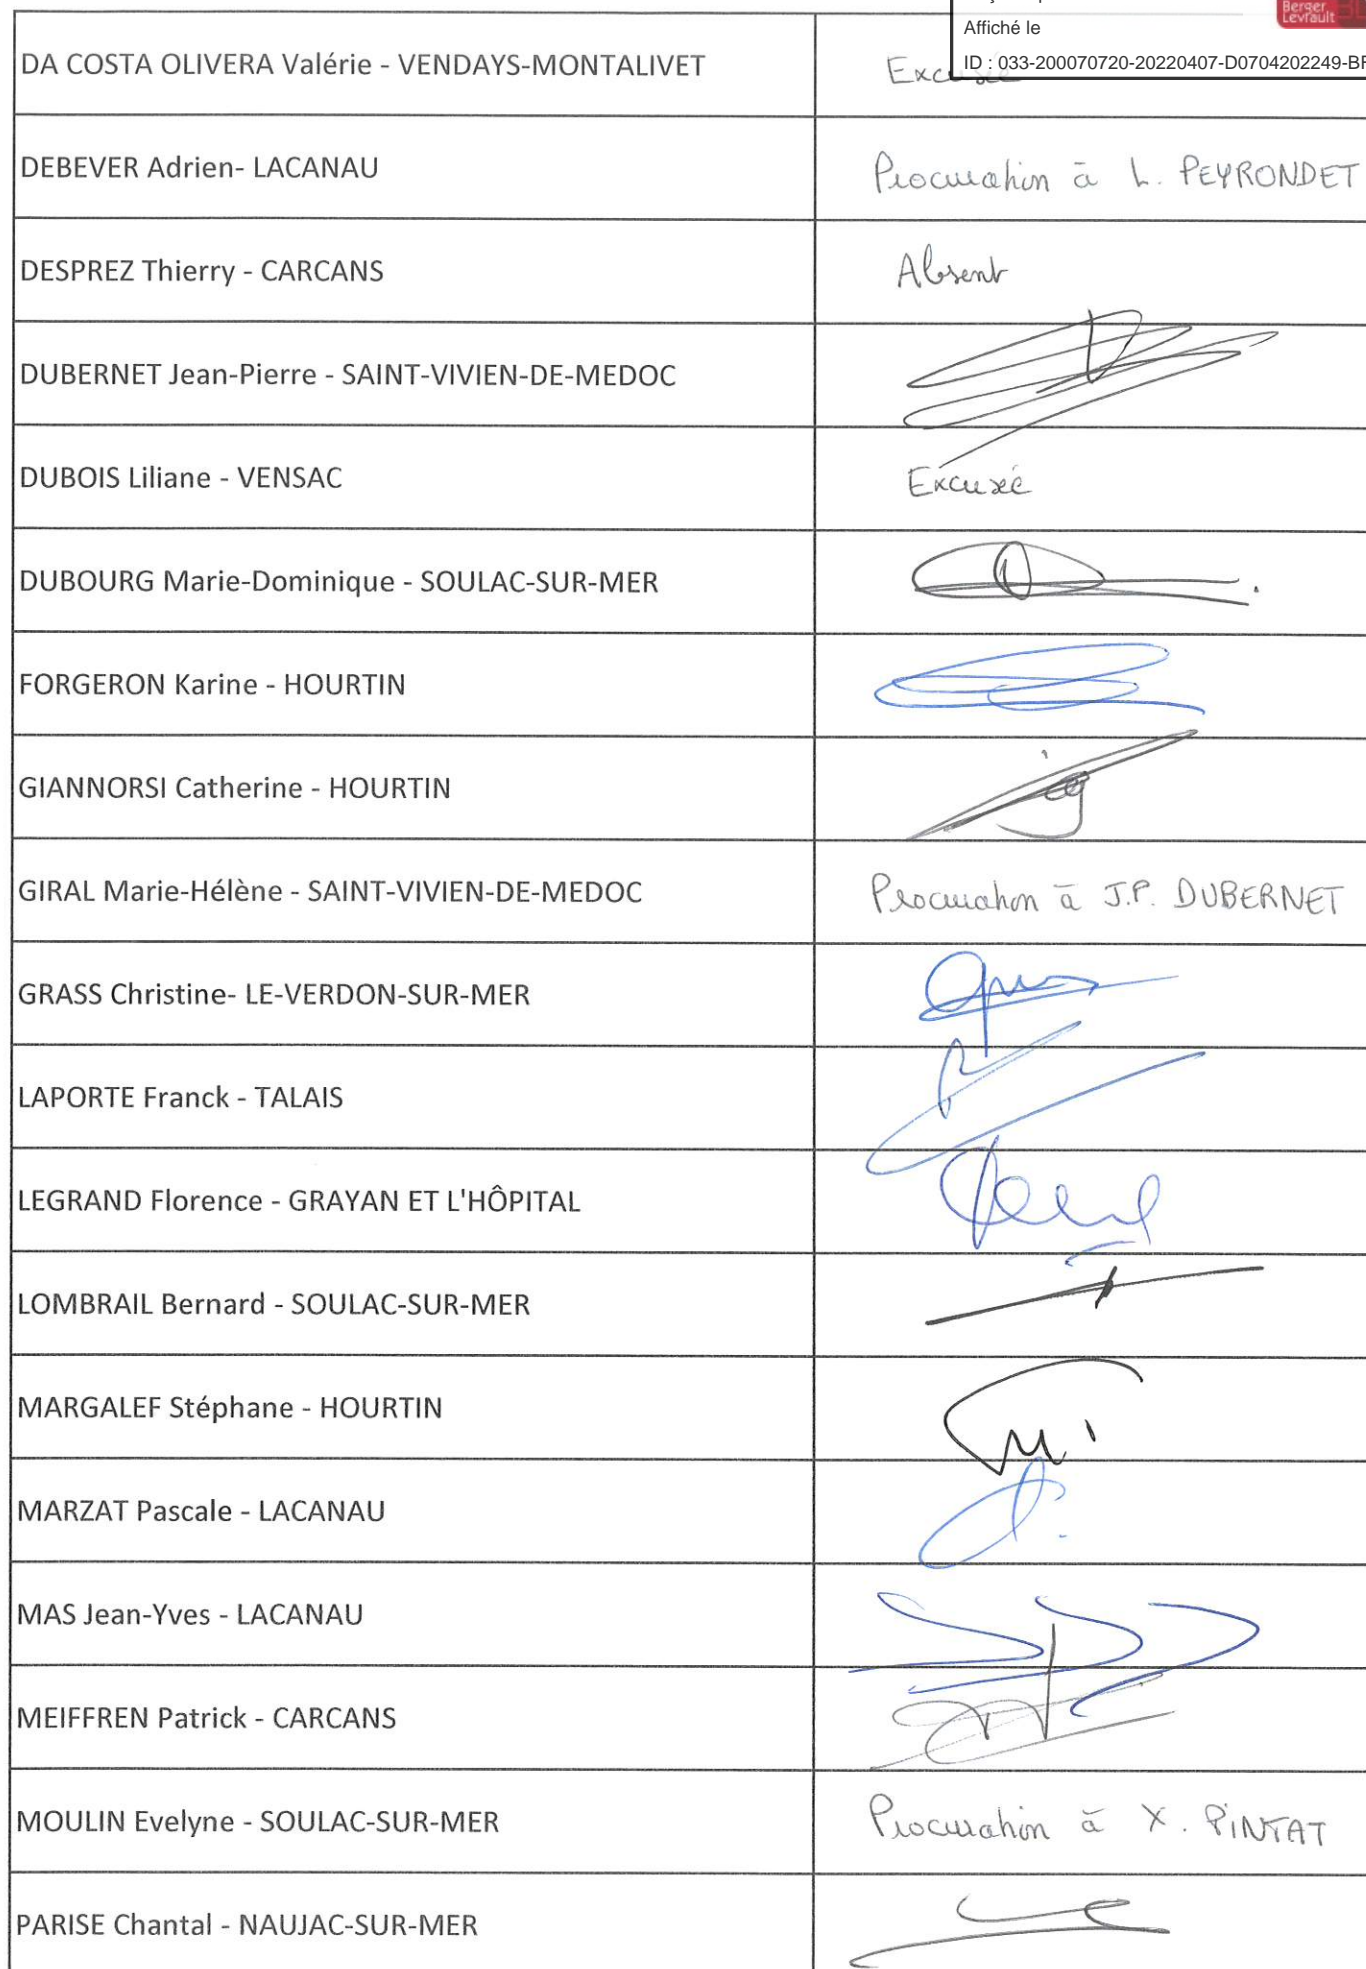 Berger
Levrault
Affiché le
ID : 033-200070720-20220407-D0704202249-BF
DA COSTA OLIVERA Valérie - VENDAYS-MONTALIVET Excusée
DEBEVER Adrien- LACANAU Procuration à L. PEYRONDET
DESPREZ Thierry - CARCANS Absent
DUBERNET Jean-Pierre - SAINT-VIVIEN-DE-MEDOC
DUBOIS Liliane - VENSAC Excusée
DUBOURG Marie-Dominique - SOULAC-SUR-MER
FORGERON Karine - HOURTIN
GIANNORSI Catherine - HOURTIN
GIRAL Marie-Hélène - SAINT-VIVIEN-DE-MEDOC Procuration à J.P. DUBERNET
GRASS Christine- LE-VERDON-SUR-MER
LAPORTE Franck - TALAIS
LEGRAND Florence - GRAYAN ET L'HÔPITAL
LOMBRAIL Bernard - SOULAC-SUR-MER
MARGALEF Stéphane - HOURTIN
MARZAT Pascale - LACANAU
MAS Jean-Yves - LACANAU
MEIFFREN Patrick - CARCANS
MOULIN Evelyne - SOULAC-SUR-MER Procuration à X. PINTAT
PARISE Chantal - NAUJAC-SUR-MER